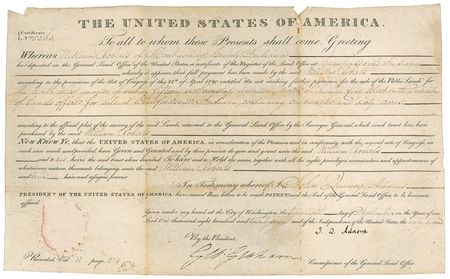 THE UNITED STATES OF AMERICA.
Certificate
To all to whom these Presents shall come, Greeting
Whereas William Roberts of Montgomery County Indiana
has deposited in the General Land Office of the United States, a certificate of the Register of the Land Office at Crawfordsville Indiana
whereby it appears that full payment has been made by the said William Roberts
according to the provisions of the Act of Congress of the 24th of April 1820, entitled "An act making further provision for the sale of the Public Lands," for
of Lands offered for sale at Crawfordsville Indiana, containing
according to the official plat of the survey of the said Lands, returned to the General Land Office by the Surveyor General which said tract has been
purchased by the said William Roberts
NOW KNOW YE, that the UNITED STATES OF AMERICA, in consideration of the Premises and in conformity with the several acts of Congress, in
such cases made and provided, have Given and Granted and by these presents do give and grant unto the said William Roberts
and to his heirs the said tract above described To have and to Hold the same, together with all the rights, privileges, immunities and appurtenances of
whatsoever nature, thereunto belonging, unto the said William Roberts
and to his heirs and assigns forever.
In Testimony whereof, I, John Quincy Adams
PRESIDENT OF THE UNITED STATES OF AMERICA, have caused these Letters to be made PATENT, and the Seal of the General Land Office to be hereunto
affixed.
Given under my hand at the City of Washington, the day of in the Year of our
Lord One thousand eight hundred and and of the Independence of the United States the
J. Q. Adams
By the President,
Geo Graham
Commissioner of the General Land Office.
Recorded, Vol. page